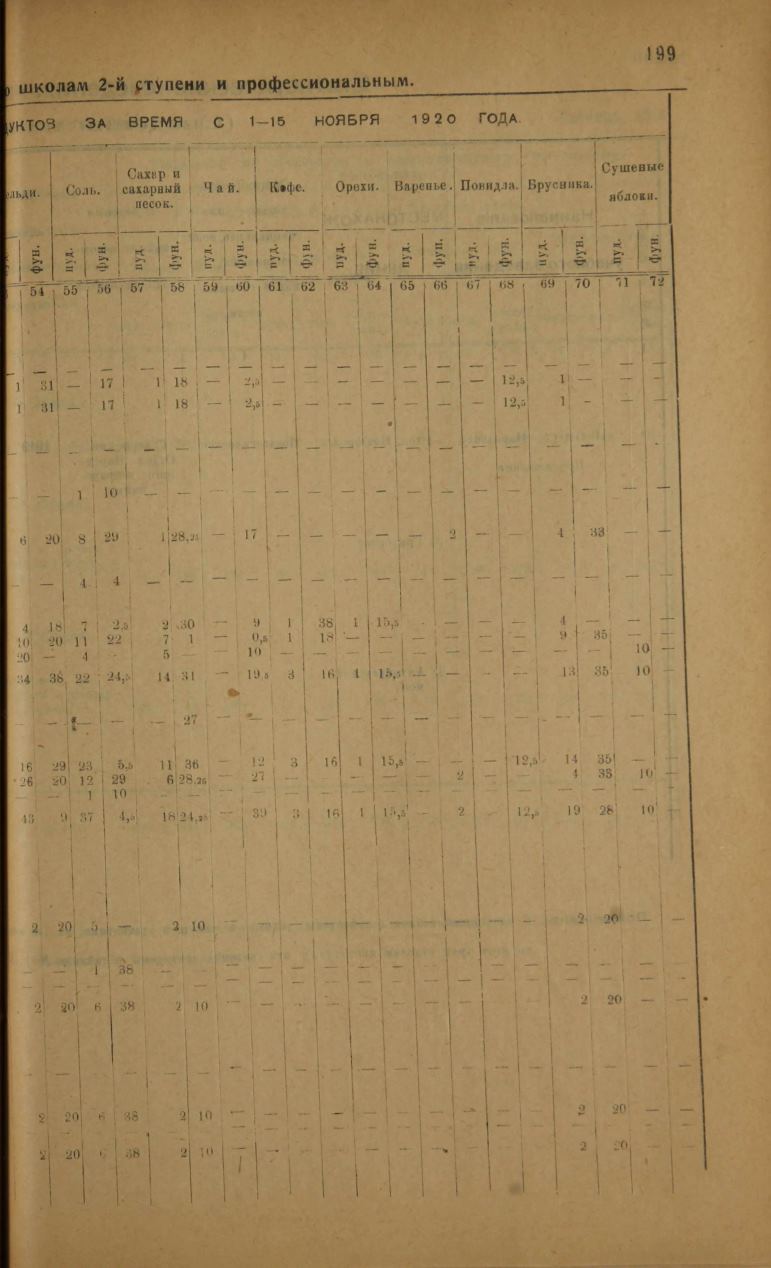 199
школам 2-й ступени и профессиональным.
УКТОВ ЗА ВРЕМЯ С 1—15 НОЯБРЯ 1920 ГОДА.
льди. Соль. Сахар и сахарный песок. Чай. Кофе. Орехи. Варенье. Повидла. Брусника. Сушеные яблоки.
фун. пуд. фун. пуд. фун. пуд. фун. пуд. фун. пуд. фун. пуд. фун. пуд. фун. пуд. фун. пуд. фун.
54 55 56 57 58 59 60 61 62 63 64 65 66 67 68 69 70 71 72
— — — — — — — — — — — — — — — — — — — —
1 31 — 17 1 18 — 2,5 — — — — — — — 12,5 1 — — —
1 31 — 17 1 18 — 2,5 — — — — — — — 12,5 1 - — —
— — — — — — — — — — — — — — — — — — — —
— — 1 10 — — — — — — — — — — — — — — — —
6 20 8 29 1 28,25 — 17 — — — — — 2 — — 4 33 — —
— — 4 4 — — — — — — — — — — — — — — — —
4 18 7 2,5 2 30 — 9 1 38 1 15,5 4 —
10 20 11 22 7 1 — 0,5 1 18 — — — — — — 9 35 — —
20 — 4 - 5 — — 10 — — — — — — — — — — 10 —
34 38 22 24,5 14 31 — 19,5 3 16 1 15,5 — — - — 13 35 10 —
— — — — — 27 — — — — — — — — — — — — — —
16 29 23 5,5 11 36 — 12 3 16 1 15,5 — — — 12,5 14 35 — —
26 20 12 29 6 28,25 — 27 — — — — — 2 — — 4 33 10 —
— — 1 10 — — — — — — — — — — — — — — — —
43 9 37 4,5 18 24,25 — 39 3 16 1 15,5 — 2 - 12,5 19 28 10 —
2 20 5 — 2 10 — — — — — — — — — — 2 20 — —
— — 1 38 — — — — — — — — — — — — — — — —
— — — — — — — — — — — — — — — — — — — —
2 20 6 38 2 10 — — — — — — — — — — 2 20 — —
— — — — — — — — — — — — — — — — — — — —
2 20 6 38 2 10 — — — — — — — — — — 2 20 — —
— — — — — — — — — — — — — — — — — — — —
2 20 6 38 2 10 — — — — — — — — — — 2 20 — —